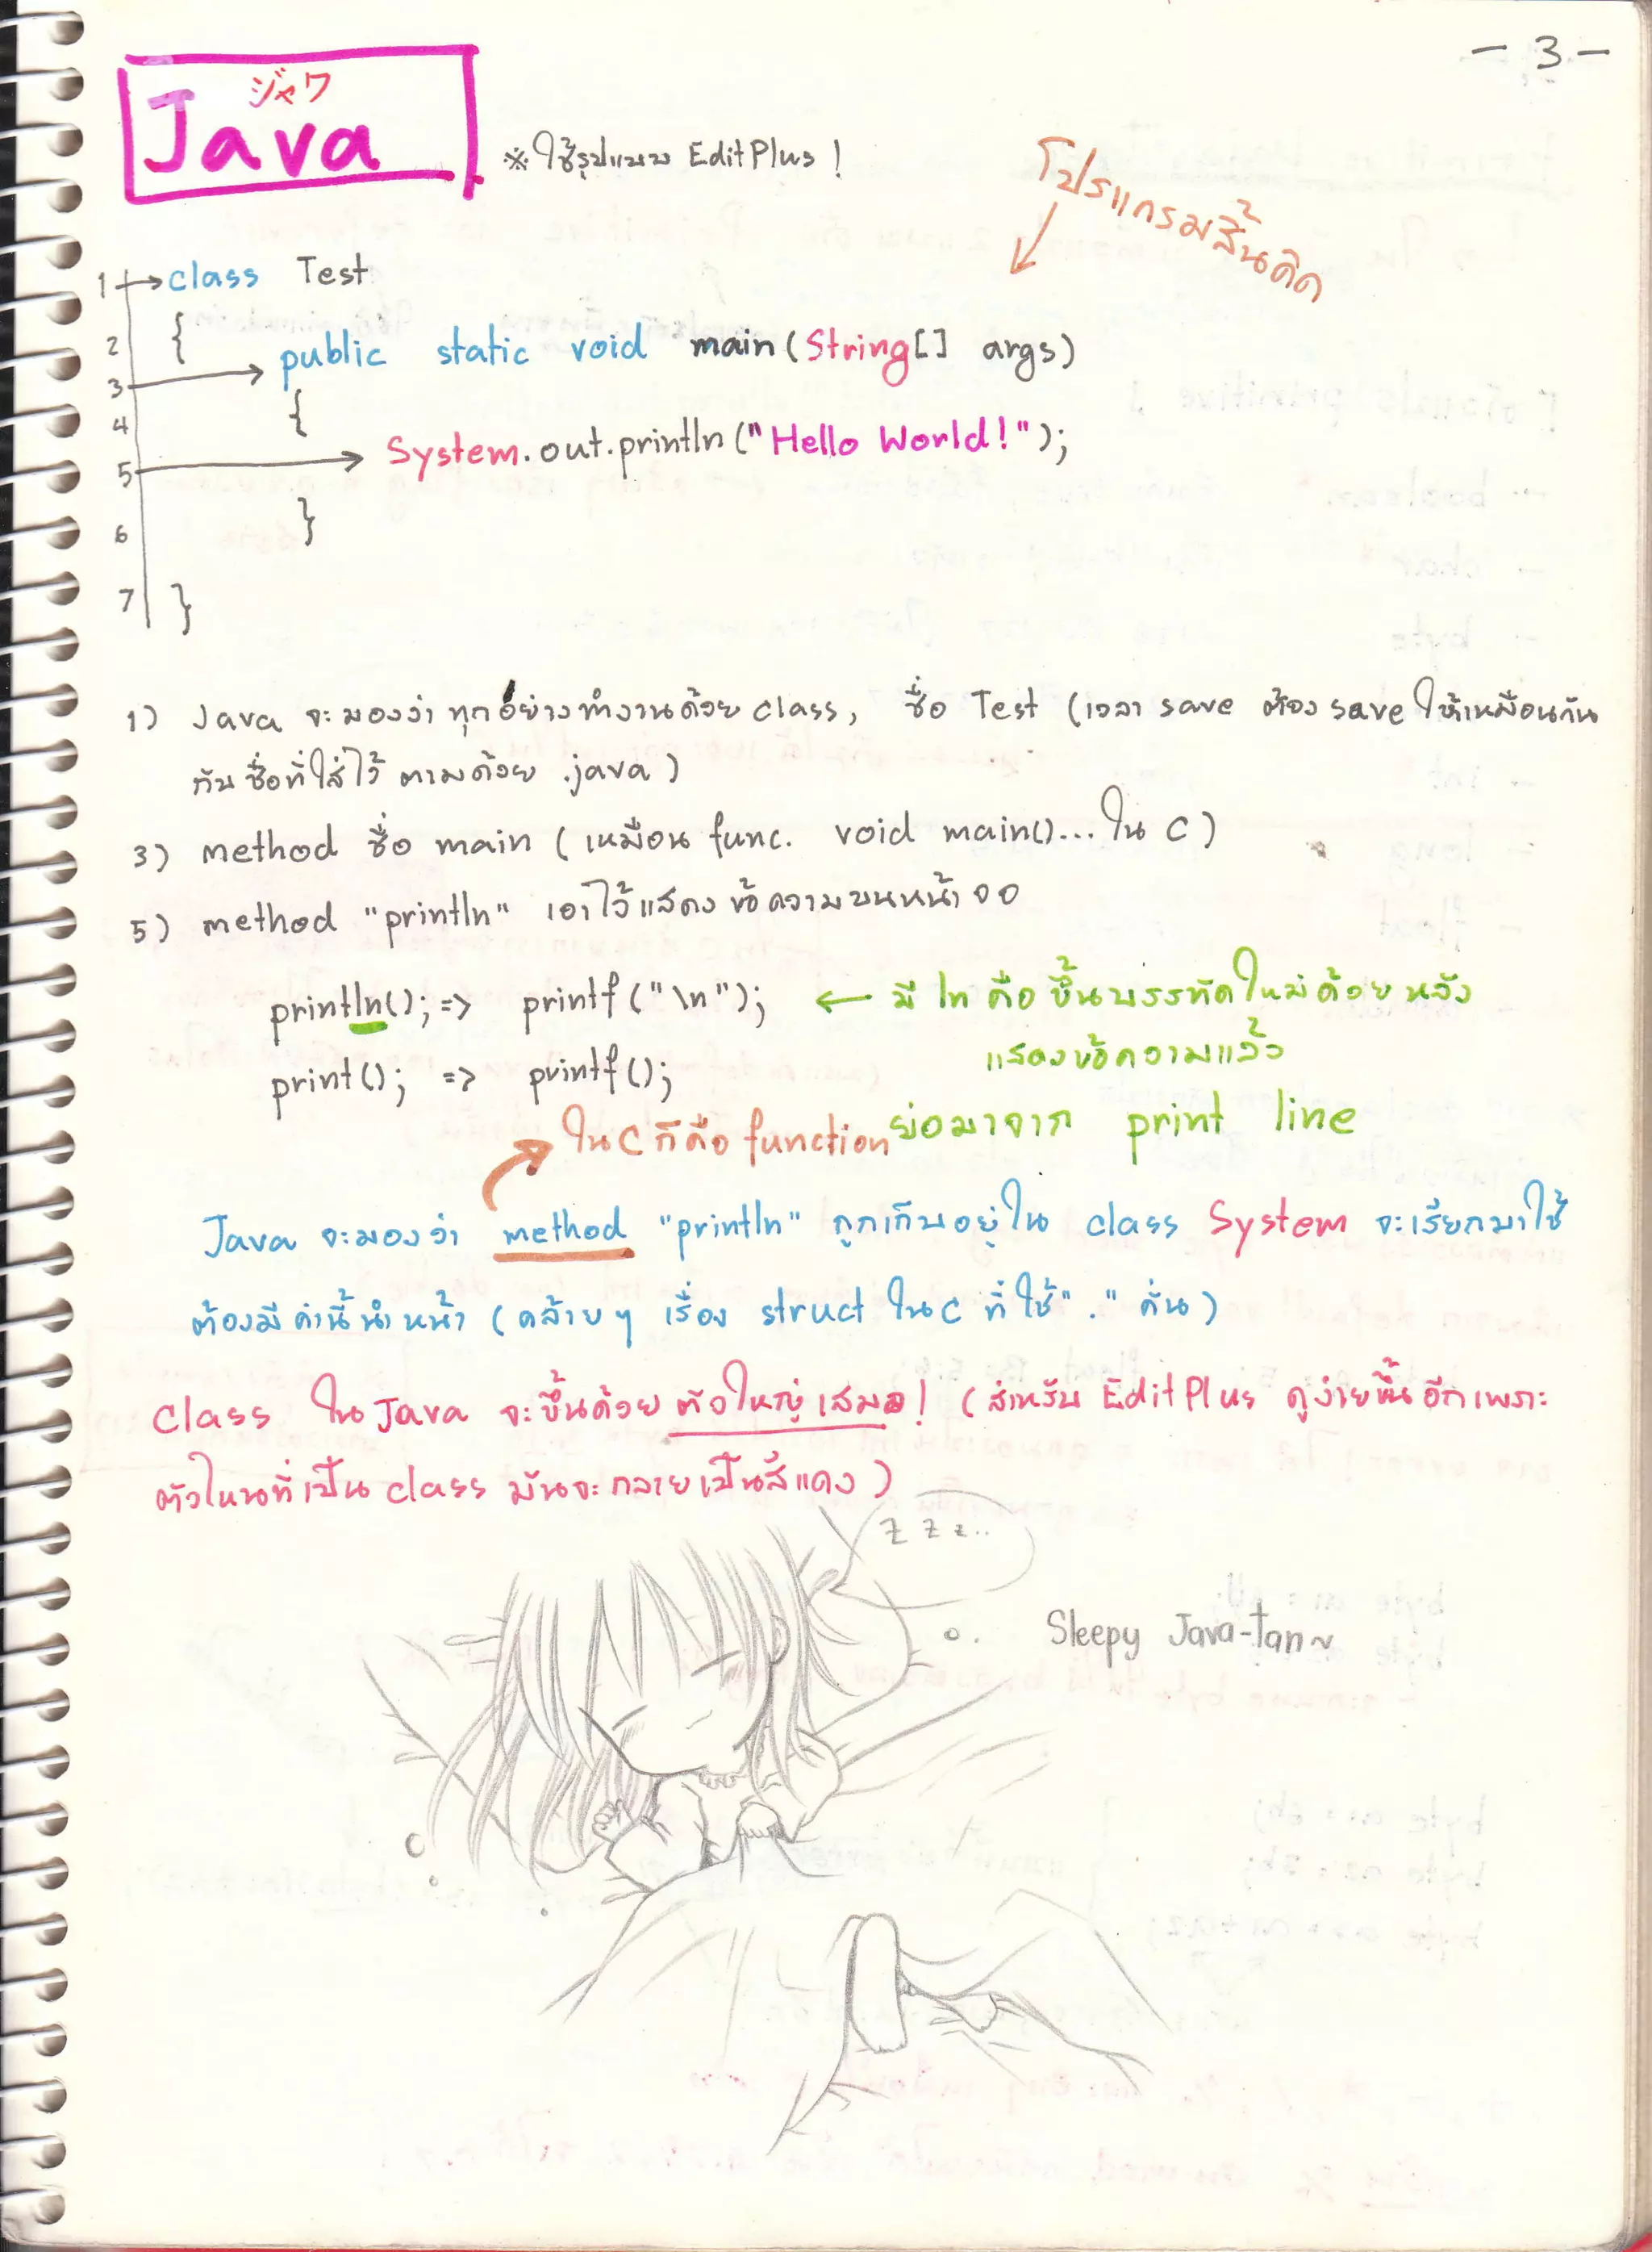 - 3 -
ジャワ
Java
※ ใช้รูปแบบ EditPlus !
โปรแกรมสิ้นคิด
1 class Test
2 {
3 public static void main(String[] args)
4 {
5 System.out.println("Hello World!");
6 }
7 }
1) Java จะมองว่า ทุกอย่างทำงานด้วย class, ชื่อ Test (เวลา save ต้อง save ให้เหมือนกัน
กับชื่อที่ใส่ไว้ ตามด้วย .java)
3) method ชื่อ main (เหมือน func. void main()... ใน C)
5) method "println" เอาไว้แสดงข้อความบนหน้าจอ
println(); => printf("\n"); ← มี ln คือขึ้นบรรทัดใหม่ด้วยหลัง
แสดงข้อความแล้ว
print(); => printf();
ย่อมาจาก print line
ใน C ก็คือ function
Java จะมองว่า method "println" ถูกเก็บอยู่ใน class System จะเรียกมาใช้
ต้องมีคำนี้นำหน้า (คล้ายๆ เรื่อง struct ใน C ที่ใช้ "." คั่น)
class ใน Java จะขึ้นด้วย ตัวใหญ่เสมอ! (สำหรับ EditPlus ดูง่ายขึ้นอีกเพราะ
ตัวไหนที่เป็น class มันจะกลายเป็นสีแดง)
z z z..
Sleepy Java-tan~